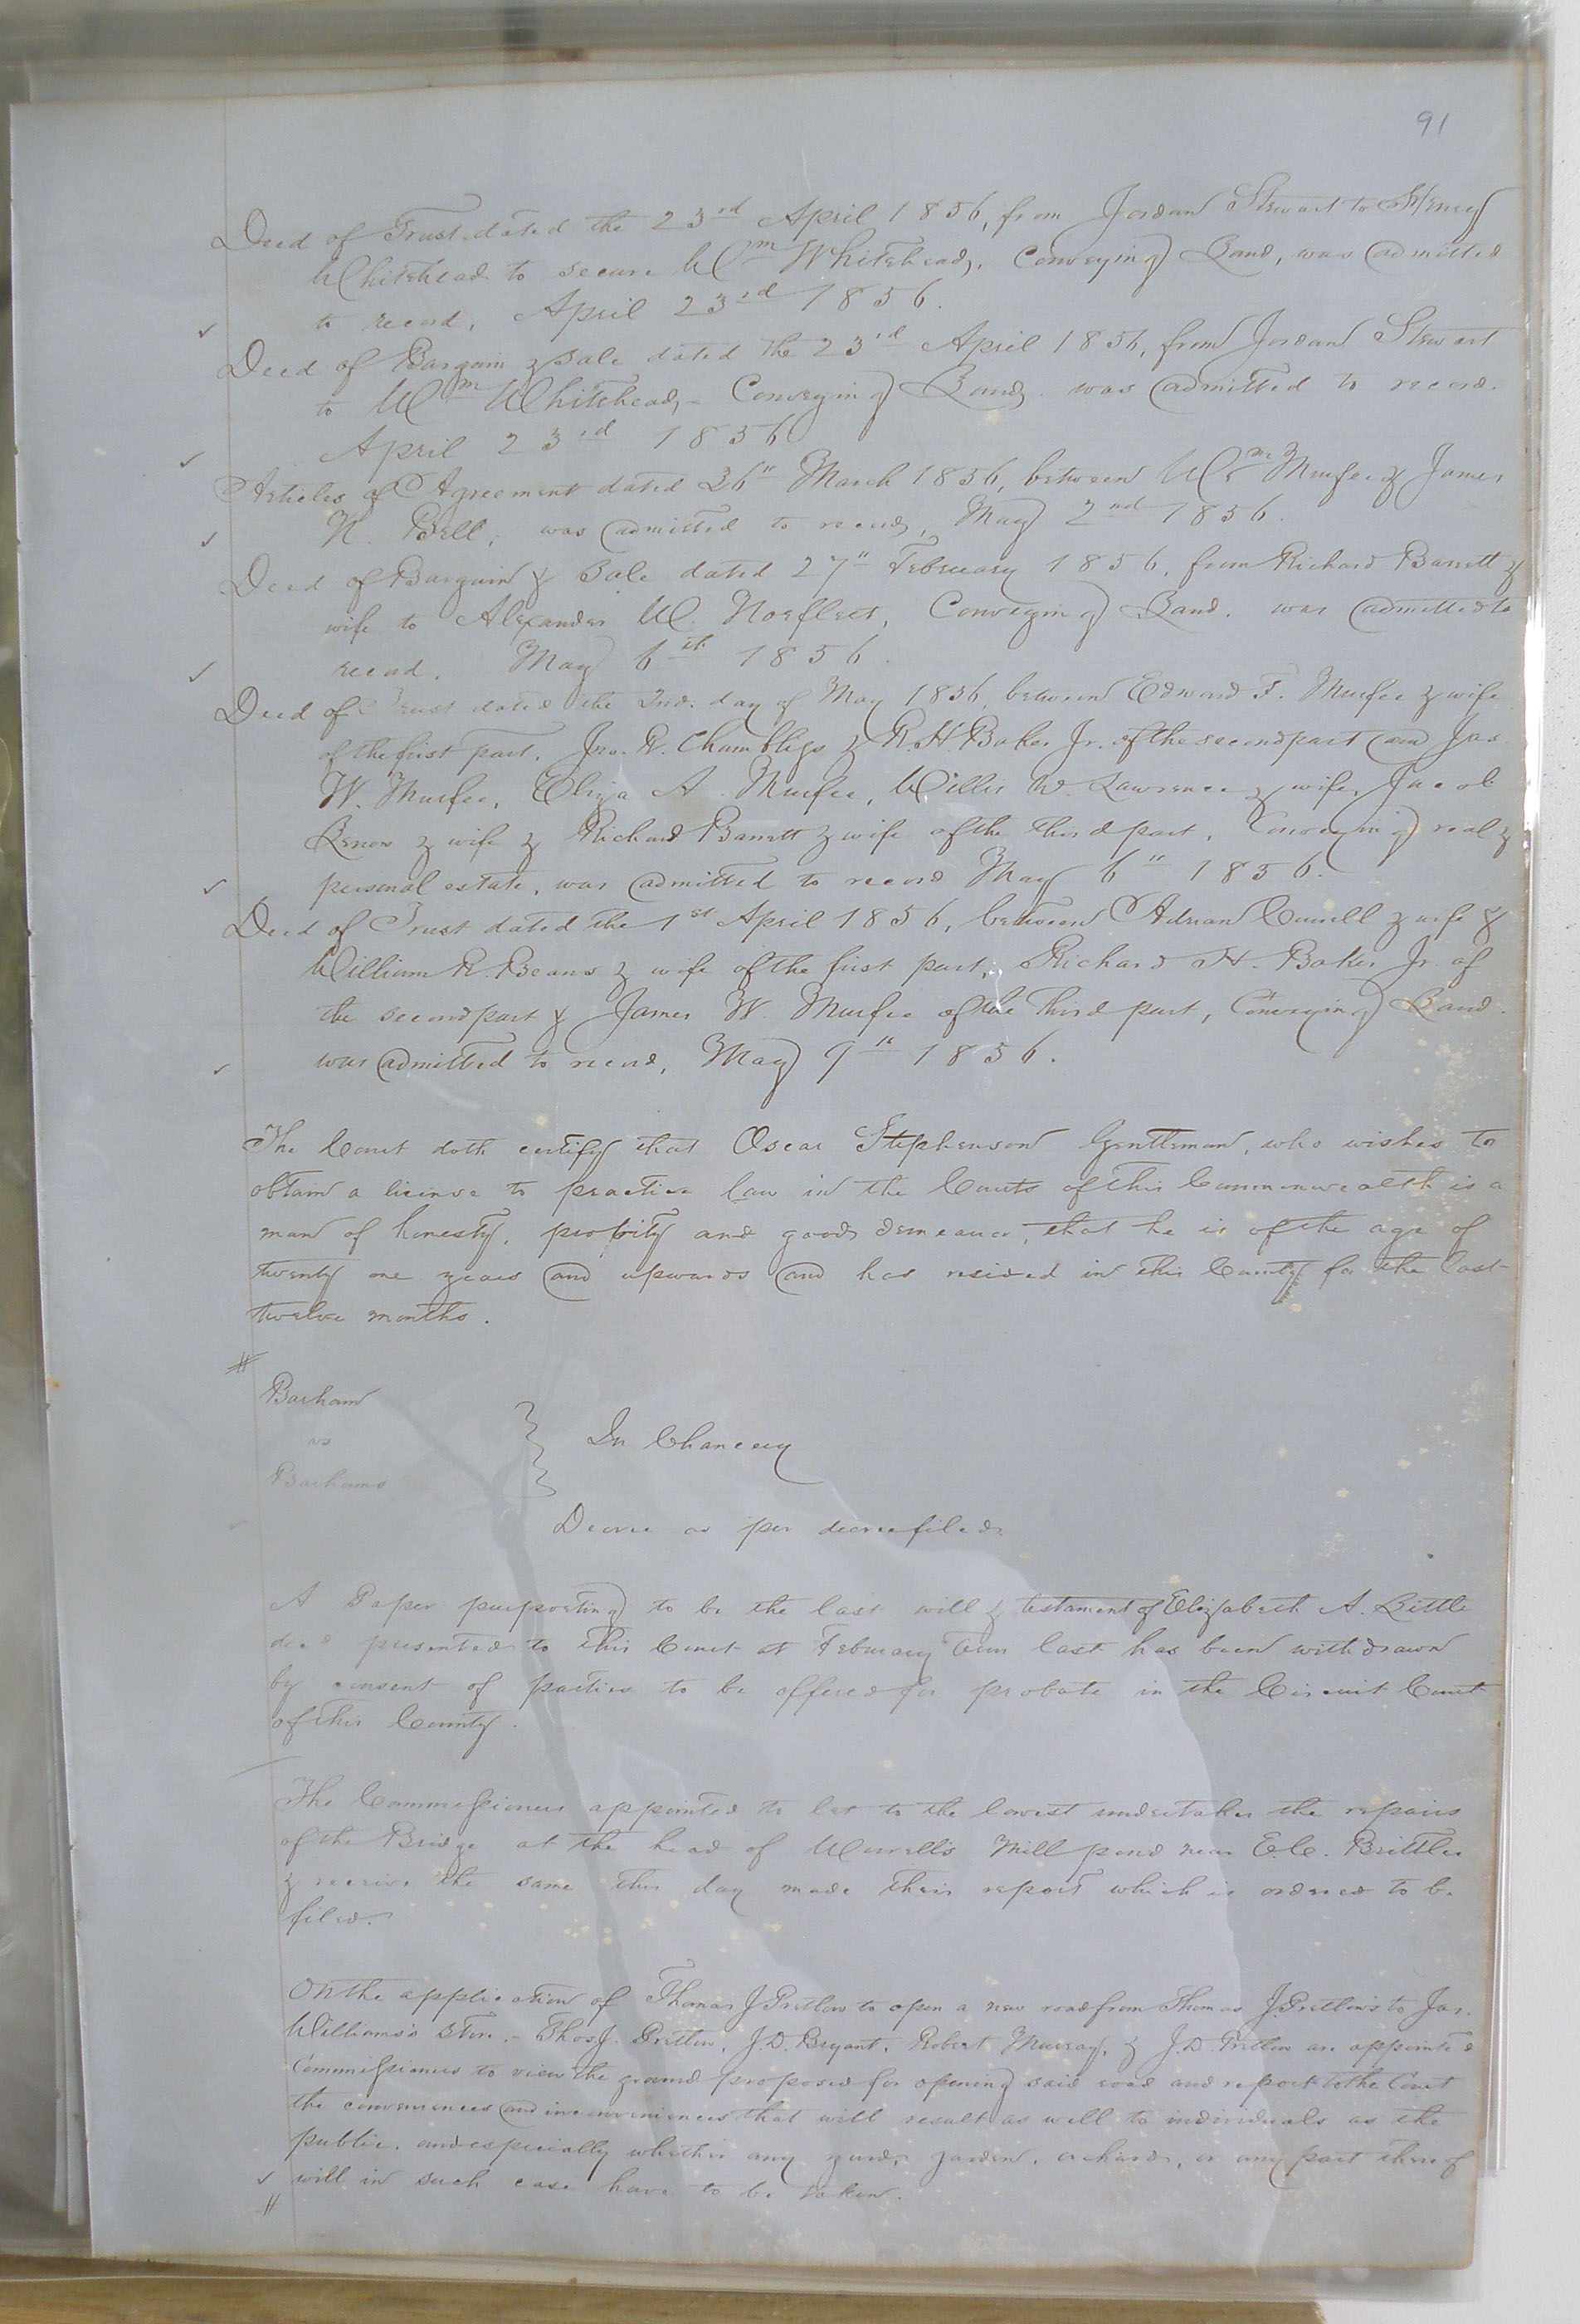 91
Deed of Trust dated the 23rd April 1856, from Jordan Stewart to Henry
Whitehead to secure Wm Whitehead, Conveying Land, was admitted
to record, April 23rd 1856.
Deed of Bargain & Sale dated the 23rd April 1856, from Jordan Stewart
to Wm Whitehead, Conveying Land, was admitted to record.
April 23rd 1856
Articles of Agreement dated 26" March 1856, between Wm Murfee & James
N. Bell, was admitted to record, May 2nd 1856.
Deed of Bargain & Sale dated 27" February 1856, from Richard Barrett &
wife to Alexander W. Norfleet, Conveying Land, was admitted to
record. May 6th 1856.
Deed of Trust dated the 2nd. day of May 1856, between Edward F. Murfee & wife
of the first part, Jno. R. Chambliss & R. H. Baker Jr. of the second part and Jas.
W. Murfee, Eliza A. Murfee, Willis W. Lawrence & wife, Jacob
& wife & Richard Barrett & wife of the third part, Conveying real &
personal estate, was admitted to record May 6" 1856.
Deed of Trust dated the 1st April 1856, between Adrian & wife &
William R. Beans & wife of the first part, Richard H. Baker Jr. of
the second part & James W. Murfee of the third part, Conveying Land.
was admitted to record, May 9th 1856.
The Court doth certify that Oscar Stephenson Gentleman, who wishes to
obtain a license to practice law in the Courts of this Commonwealth is a
man of honesty, probity and good demeanor, that he is of the age of
twenty one years and upwards and has resided in this County for the last
twelve months.
#
Barham
vs
Barhams
In Chancery
Decree as per decree filed.
A Paper purporting to be the last will & testament of Elizabeth A. Little
decd presented to this Court at February Term last has been withdrawn
by consent of parties to be offered for probate in the Circuit Court
of this County.
The Commissioners appointed to let to the lowest undertaker the repairs
of the Bridge at the head of Worrell's Mill pond near E. C. Brittles
& receive the same this day made their report which is ordered to be
filed.
On the application of Thomas J Pretlow to open a new road from Thomas J. Pretlow's to Jas.
Williams's Store, - Thos J. Pretlow, J. D. Bryant, Robert Murray, & J. D. Pretlow are appointed
Commissioners to view the ground proposed for opening said road and report to the Court
the conveniences and inconveniences that will result as well to individuals as the
public, and especially whether any yard, garden, orchard, or any part thereof
will in such case have to be taken.
#